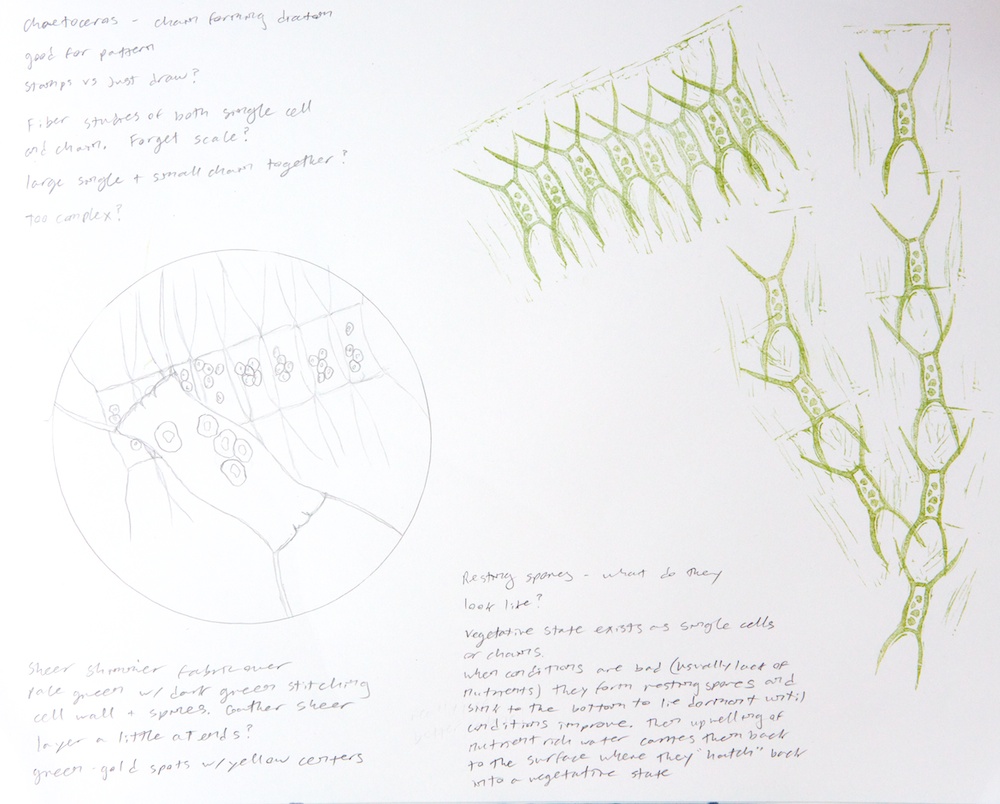 chaetoceros - chain forming diatom
good for pattern
stamps vs just draw?
Fiber studies of both single cell
and chain. Forget scale?
large single + small chain together?
too complex?
Sheer shimmer fabric over
pale green w/ dark green stitching
cell wall + spines. Gather sheer
layer a little at ends?
green-gold spots w/ yellow centers
Resting spores - what do they
look like?
vegetative state exists as single cells
or chains.
when conditions are bad (usually lack of
nutrients) they form resting spores and
sink to the bottom to lie dorment until
conditions improve. Then upwelling of
nutrient rich water carries them back
to the surface where they "hatch" back
into a vegetative state